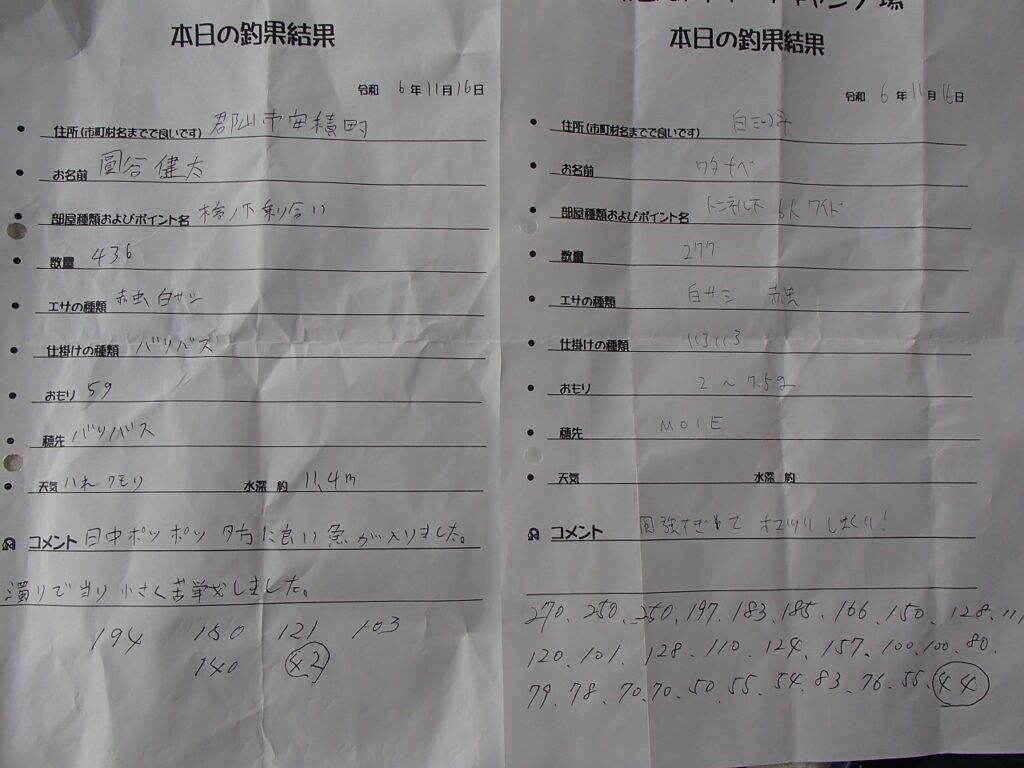 本日の釣果結果
令和 6年11月16日
住所(市町村名までで良いです) 郡山市安積町
お名前 圓谷健太
部屋種類およびポイント名 桧ノ下乗り合い
数量 436
エサの種類 赤虫 白サシ
仕掛けの種類 バリバス
おもり 5g
穂先 バリバス
天気 ハレ クモリ 水深 約 11,4m
コメント 日中ポツポツ 夕方に良い魚が入りました。
濁りで当り小さく苦戦しました。
194 150 121 103
140 ×2
本日の釣果結果
令和 6年11月16日
住所(市町村名までで良いです)
お名前 ワタナベ
部屋種類およびポイント名 6人 ワイド
数量 277
エサの種類 白サシ 赤虫
仕掛けの種類
おもり 2〜7.5g
穂先
天気 水深 約
コメント 風強すぎ オマツリ しまくり!
270、250、250、197、183、185、166、150、128、11
120、101、128、110、124、157、100、100、80、
79、78、70、70、50、55、54、83、76、55、